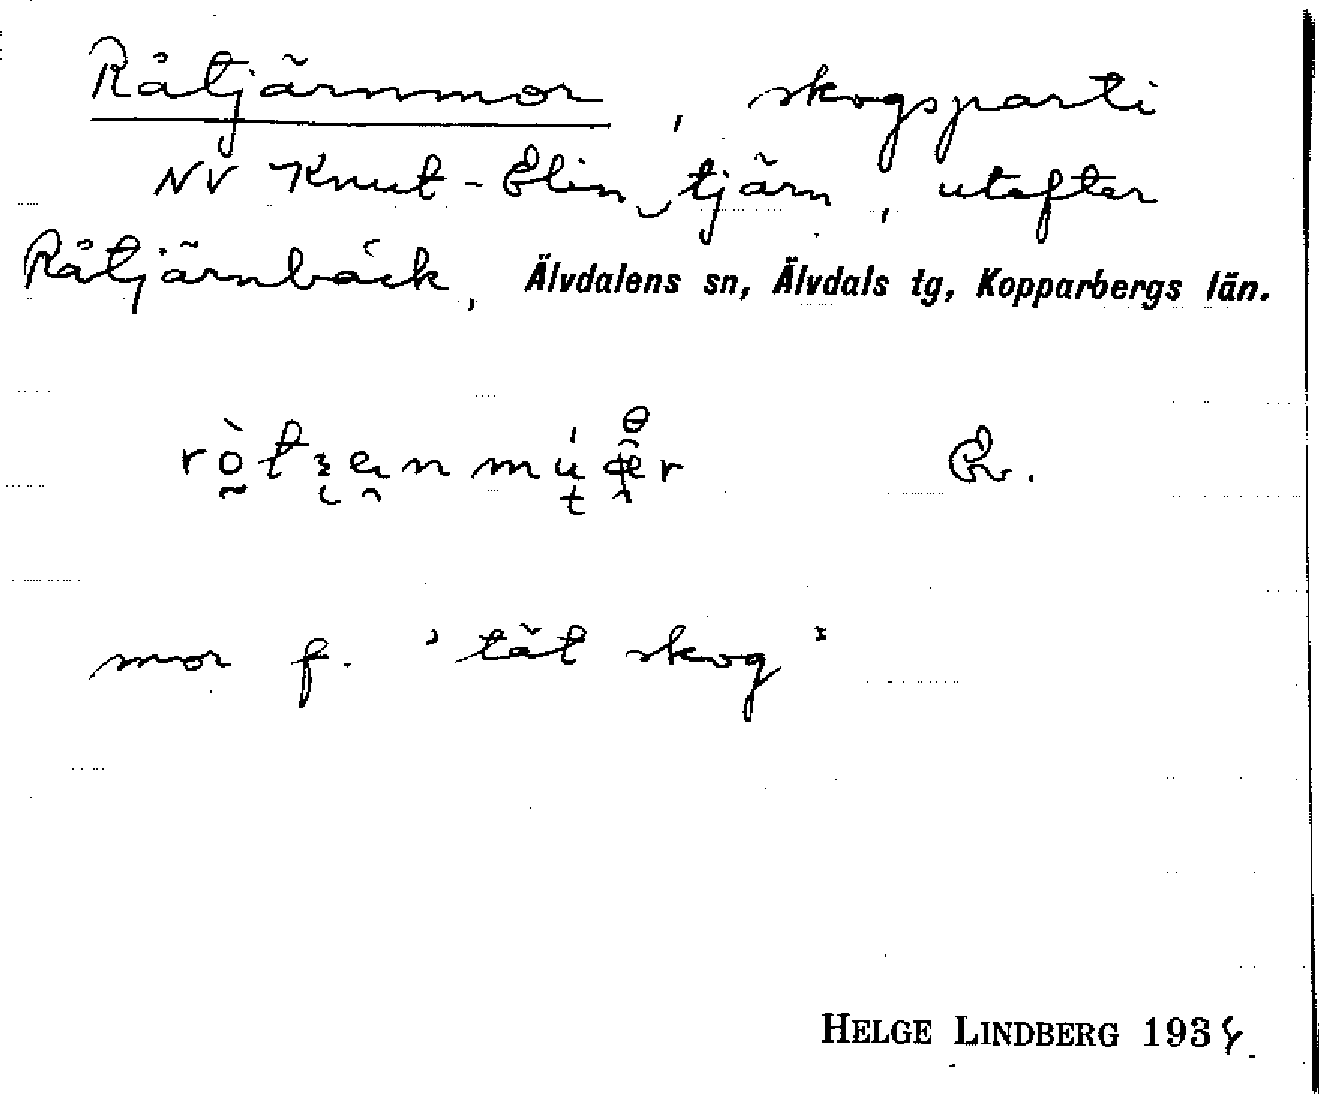 Råtjärnmor, skogsparti
NV Knut-Elin tjärn, utefter
Råtjärnbäck, Älvdalens sn, Älvdals tg, Kopparbergs län.
mor f. 'tät skog'
HELGE LINDBERG 1934